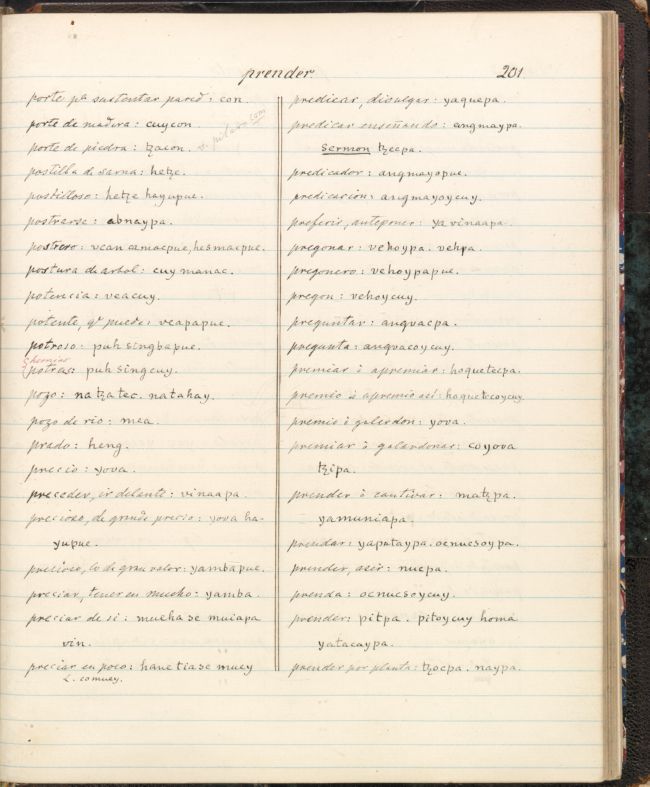 prender.
201
porte pª sustentar pared: con.
porte de madera: cuycon.
porte de piedra: tzacon. v. pilar con
postilla de sarna: hetze.
postilloso: hetze hayupue.
postrarse: abnaypa.
postrero: vcan camaepue, hesmaepue.
postura de arbol: cuy manac.
potencia: veacuy.
potente, qe puede: veapapue.
potroso: puh singbapue.
potras: puh singcuy.
pozo: natzatec. natahay.
pozo de rio: mea.
prado: heng.
precio: yova.
preceder, ir delante: vinaapa.
precioso, de grande precio: yova ha-
yupue.
precioso, lo de gran valor: yambapue.
preciar, tener en mucho: yamba.
preciar de si: muchase muiapa
vin.
preciar en poco: hanetiase muey
L. comuey.
predicar, divulgar: yaquepa.
predicar enseñando: angmaypa.
sermon tzecpa.
predicador: angmayopue.
predicacion: angmayoycuy.
preferir, anteponer: ya vinaapa.
pregonar: vehoypa. vehpa.
pregonero: vehoypapue.
pregon: vehoycuy.
preguntar: angvacpa.
pregunta: angvacoycuy.
premiar ò apremiar: hoquetecpa.
premio ò apremio asi: hoquetecoycuy.
premio ò galardon: yova.
premiar ò galardonar: coyova
tzipa.
prender ò cautivar: matzpa.
yamuniapa.
prendar: yaputaypa. ocnucsoypa.
prender, asir: nucpa.
prenda: ocnucsoycuy.
prender: pitpa. pitoycuy homa
yatacaypa.
prender por planta: tzocpa. naypa.